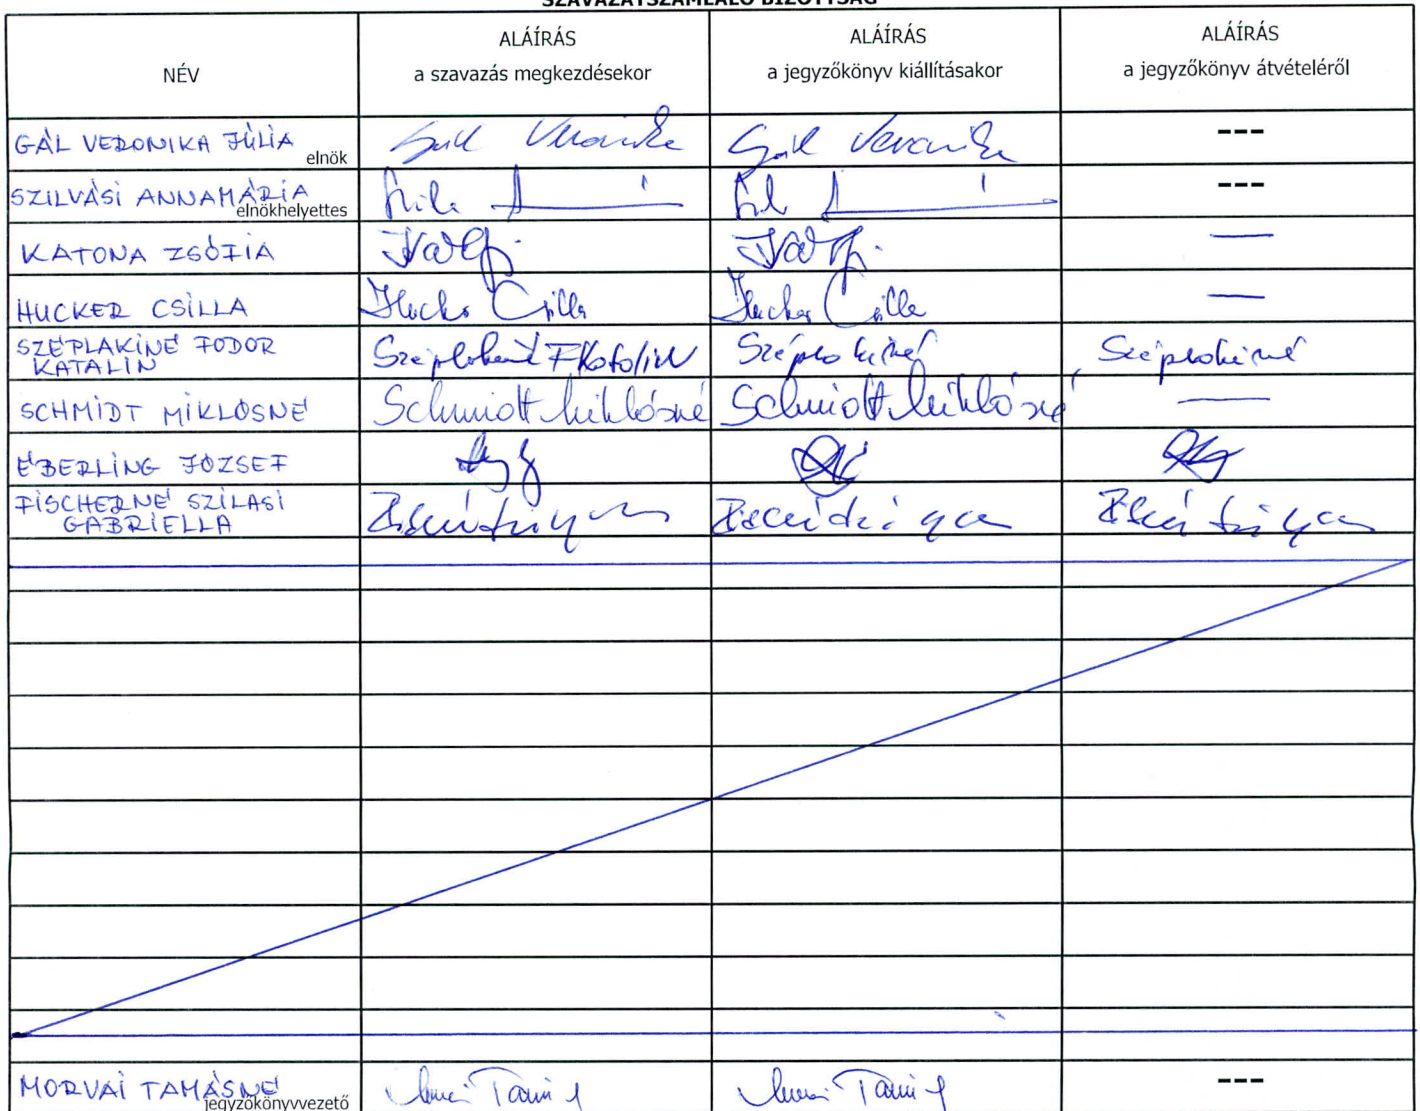 SZAVAZATSZÁMLÁLÓ BIZOTTSÁG
NÉV
ALÁÍRÁS
a szavazás megkezdésekor
ALÁÍRÁS
a jegyzőkönyv kiállításakor
ALÁÍRÁS
a jegyzőkönyv átvételéről
GÁL VERONIKA JÚLIA
elnök
Gál Veronika
Gál Veronika
---
SZILVÁSI ANNAMÁRIA
elnökhelyettes
---
KATONA ZSÓFIA
HUCKER CSILLA
Hucker Csilla
Hucker Csilla
SZÉPLAKINÉ FODOR
KATALIN
Széplakiné F Katalin
Széplakiné
Széplakiné
SCHMIDT MIKLÓSNÉ
Schmidt Miklósné
Schmidt Miklósné
ÉBERLING JÓZSEF
FISCHERNÉ SZILASI
GABRIELLA
MORVAI TAMÁSNÉ
jegyzőkönyvvezető
---